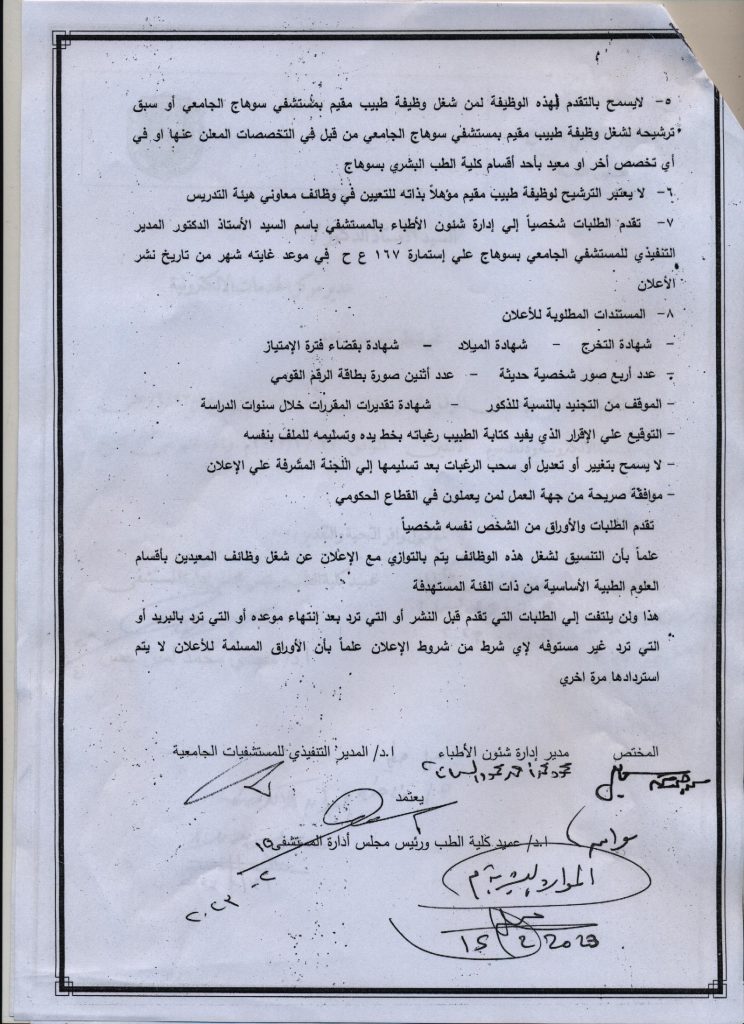 ٥- لايسمح بالتقدم لهذه الوظيفة لمن شغل وظيفة طبيب مقيم بمستشفي سوهاج الجامعي أو سبق
ترشيحه لشغل وظيفة طبيب مقيم بمستشفي سوهاج الجامعي من قبل في التخصصات المعلن عنها او في
أي تخصص أخر او معيد بأحد أقسام كلية الطب البشري بسوهاج
٦- لا يعتبر الترشيح لوظيفة طبيب مقيم مؤهلاً بذاته للتعيين في وظائف معاوني هيئة التدريس
٧- تقدم الطلبات شخصياً إلي إدارة شئون الأطباء بالمستشفي باسم السيد الأستاذ الدكتور المدير
التنفيذي للمستشفي الجامعي بسوهاج علي إستمارة ١٦٧ ع ح في موعد غايته شهر من تاريخ نشر
الأعلان
٨- المستندات المطلوبة للأعلان
- شهادة التخرج - شهادة الميلاد - شهادة بقضاء فترة الإمتياز
- عدد أربع صور شخصية حديثة - عدد أثنين صورة بطاقة الرقم القومي
- الموقف من التجنيد بالنسبة للذكور - شهادة تقديرات المقررات خلال سنوات الدراسة
- التوقيع علي الإقرار الذي يفيد كتابة الطبيب رغباته بخط يده وتسليمه للملف بنفسه
- لا يسمح بتغيير أو تعديل أو سحب الرغبات بعد تسليمها إلي اللجنة المشرفة علي الإعلان
- موافقة صريحة من جهة العمل لمن يعملون في القطاع الحكومي
تقدم الطلبات والأوراق من الشخص نفسه شخصياً
علماً بأن التنسيق لشغل هذه الوظائف يتم بالتوازي مع الإعلان عن شغل وظائف المعيدين بأقسام
العلوم الطبية الأساسية من ذات الفئة المستهدفة
هذا ولن يلتفت إلي الطلبات التي تقدم قبل النشر أو التي ترد بعد إنتهاء موعده أو التي ترد بالبريد أو
التي ترد غير مستوفه لاي شرط من شروط الإعلان علماً بأن الأوراق المسلمة للأعلان لا يتم
استردادها مرة اخري
المختص مدير إدارة شئون الأطباء ا.د/ المدير التنفيذي للمستشفيات الجامعية
يعتمد
ا.د/ عميد كلية الطب ورئيس مجلس أدارة المستشفي
١٥
٢
٢٠٢٣
الموارد البشرية
15 2 2023